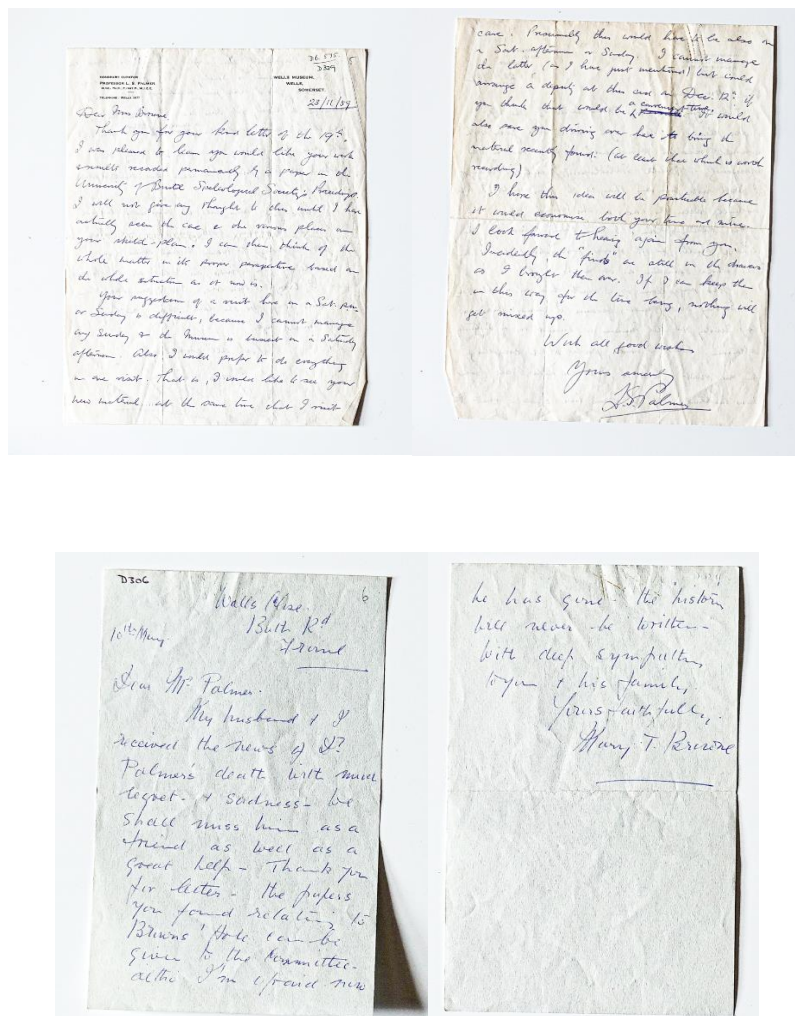 D6 575
D309
5
HONORARY CURATOR
PROFESSOR L. S. PALMER
WELLS MUSEUM,
WELLS,
SOMERSET.
23/11/59
Dear Mrs Browne,
Thank you for your kind letter of the 19th.
I was pleased to learn you would like your work
results recorded permanently by a paper in the
University of Bristol Spelaeological Society's Proceedings.
I will not give any thought to this until I have
actually seen the cave & the various places on
your sketch-plan. I can then think of the
whole matter in its proper perspective based on
the whole situation as it now is.
Your suggestion of a visit here on a Sat. p.m.
or Sunday is difficult, because I cannot manage
any Sunday & the Museum is busiest on a Saturday
afternoon. Also, I would prefer to do everything
in one visit. That is, I would like to see your
new material at the same time that I visit
cave. Presumably this would have to be also on
a Sat. afternoon or Sunday. I cannot manage
the latter, (as I have just mentioned) but could
arrange a deputy at this end on Dec. 12th if
you think that would be convenient. It would
also save you driving over here to bring the
material recently found. (at least that which is worth
recording)
I hope this idea will be practicable because
it would economise both your time and mine.
I look forward to hearing again from you.
Incidently the "finds" are still in the drawers
as I brought them over. If I can keep them
in this way for the time being, nothing will
get mixed up.
With all good wishes
Yours sincerely
L.S. Palmer
D306
6
Wells
Bath Rd
Frome
10th May
Dear Mr Palmer.
My husband & I
received the news of Dr
Palmer's death with much
regret - & sadness - We
shall miss him as a
friend as well as a
great help - Thank you
for letter - the papers
you found relating to
Browns' Hole can be
given to the Committee -
altho I'm afraid now
he has gone the history
will never be written -
With deep sympathy
to you & his family,
Yours faithfully,
Mary T. Browne